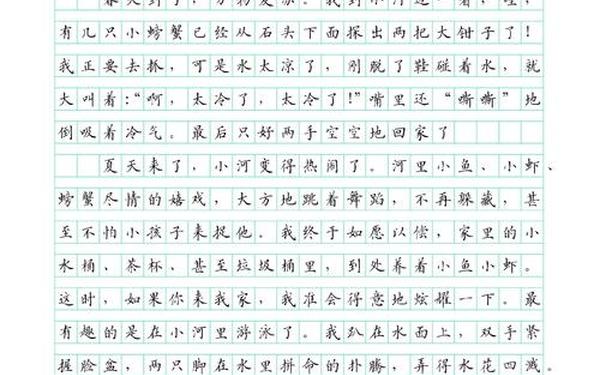 春天到了，万物复苏。我到小河边一看，哇，
有几只小螃蟹已经从石头下面探出两把大钳子了！
我正要去抓，可是水太凉了，刚脱了鞋碰着水，就
大叫着：“啊，太冷了，太冷了！”嘴里还“嘶嘶”地
倒吸着冷气。最后只好两手空空地回家了
夏天来了，小河变得热闹了。河里小鱼、小虾、
螃蟹尽情的嬉戏，大方地跳着舞蹈，不再躲藏，甚
至不怕小孩子来捉他。我终于如愿以偿，家里的小
水桶、茶杯、甚至垃圾桶里，到处养着小鱼小虾。
这时，如果你来我家，我准会得意地炫耀一下。最
有趣的是在小河里游泳了。我趴在水面上，双手紧
握脸盆，两只脚在水里拼命的扑腾，弄得水花四溅。